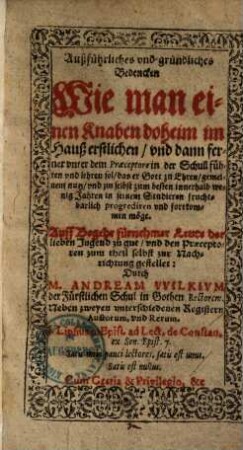 Außführliches vnd gründliches
Bedencken
Wie man ei-
nen Knaben doheim im
Hauß erstlichen / vnd dann fer-
ner vnter dem Præceptore in der Schul füh-
ren vnd lehren sol / das er Gott zu Ehren / gemei-
nem nutz / vnd zu selbst zum besten innerhalb we-
nig Jahren in seinem Studieren frucht-
barlich progrediren vnd fortkom-
men möge.
Auff Begehr fürnehmer Leute der
lieben Jugend zu gut / vnd den Præcepto-
ren zum theil selbst zur Nach-
richtung gestellet:
Durch
M. ANDREAM VVILKIVM
der Fürstlichen Schul in Gothen Rectorem.
Neben zweyen vnterschiedenen Registern
Autorum, vnd Rerum.
Lipsius Epist. ad Lect. de Constan.
ex Sen. Epist. 7.
Satis sunt pauci lectores, satis est unus,
Satis est nullus.
Cum Gratia & Privilegio, &c